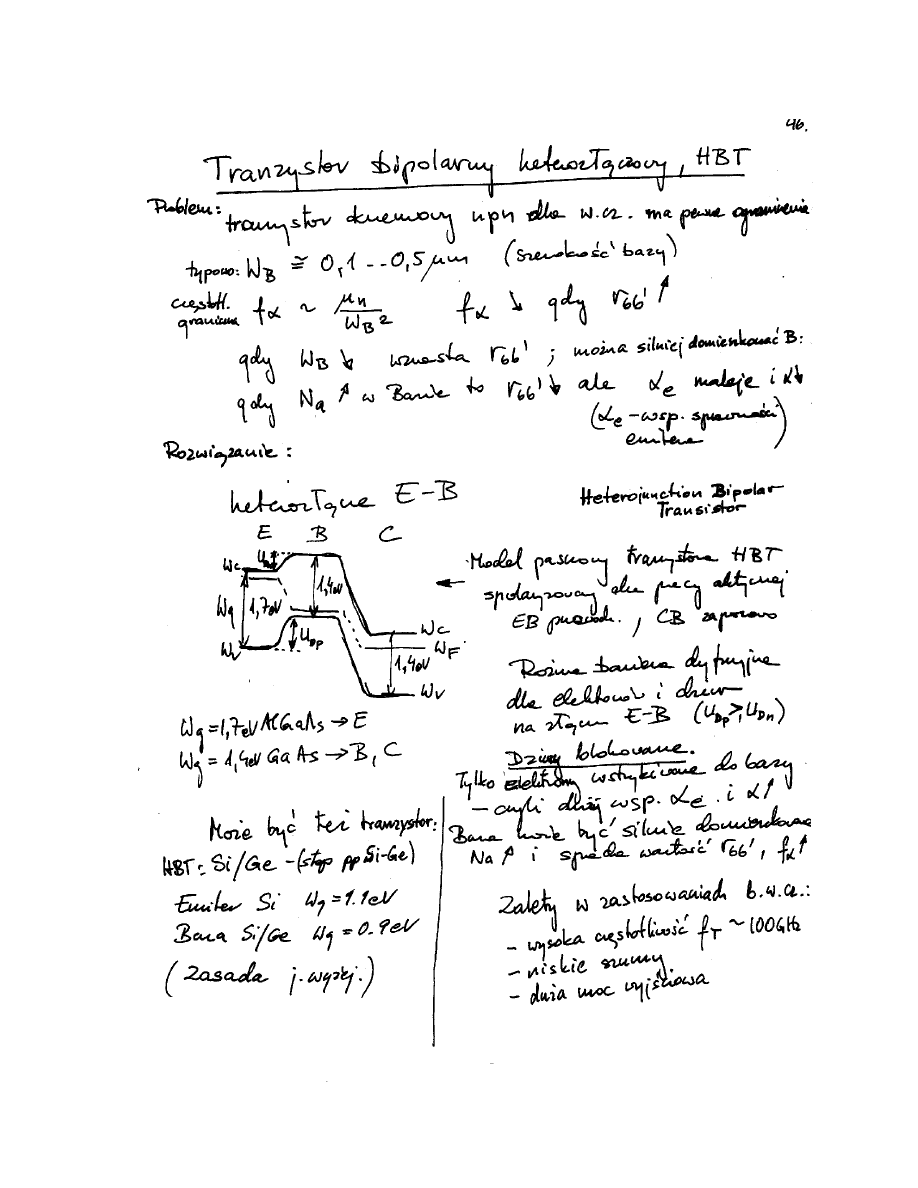 46.
Tranzystor bipolarny heterozłączowy, HBT
Problem: tranzystor krzemowy npn dla w.cz. ma pewne ograniczenia
typowo: W_B ≅ 0,1 -- 0,5 μm (szerokość bazy)
częstotl. graniczna fα ~ μn / W_B² fα ↓ gdy rbb' ↑
gdy W_B ↓ wzrasta rbb' ; można silniej domieszkować B:
gdy Na ↑ w Bazie to rbb' ↓ ale αe maleje i α↓
(αe - wsp. sprawności
emitera)
Rozwiązanie:
heterozłącze E-B
Heterojunction Bipolar
Transistor
E B C
Wc
1,4eV
Wg 1,7eV
UDp
Wv
Wc
WF
1,4eV
Wv
← Model pasmowy tranzystora HBT
spolaryzowany dla pracy aktywnej
EB przewodz., CB zaporowo
Różna bariera dyfuzyjna
dla elektronów i dziur
na złączu E-B (UDp > UDn)
Dziury blokowane.
Tylko elektrony wstrzykiwane do bazy
- czyli duży wsp. αe i α↑
Baza może być silnie domieszkowana
Na ↑ i spada wartość rbb', fα↑
Wg = 1,7eV AlGaAs → E
Wg = 1,4eV GaAs → B, C
Może być też tranzystor:
HBT: Si/Ge - (stop pp Si-Ge)
Emiter Si Wg = 1.1eV
Baza Si/Ge Wg = 0.9eV
(Zasada j. wyżej.)
Zalety w zastosowaniach b.w.cz.:
- wysoka częstotliwość fT ~ 100GHz
- niskie szumy
- duża moc wyjściowa